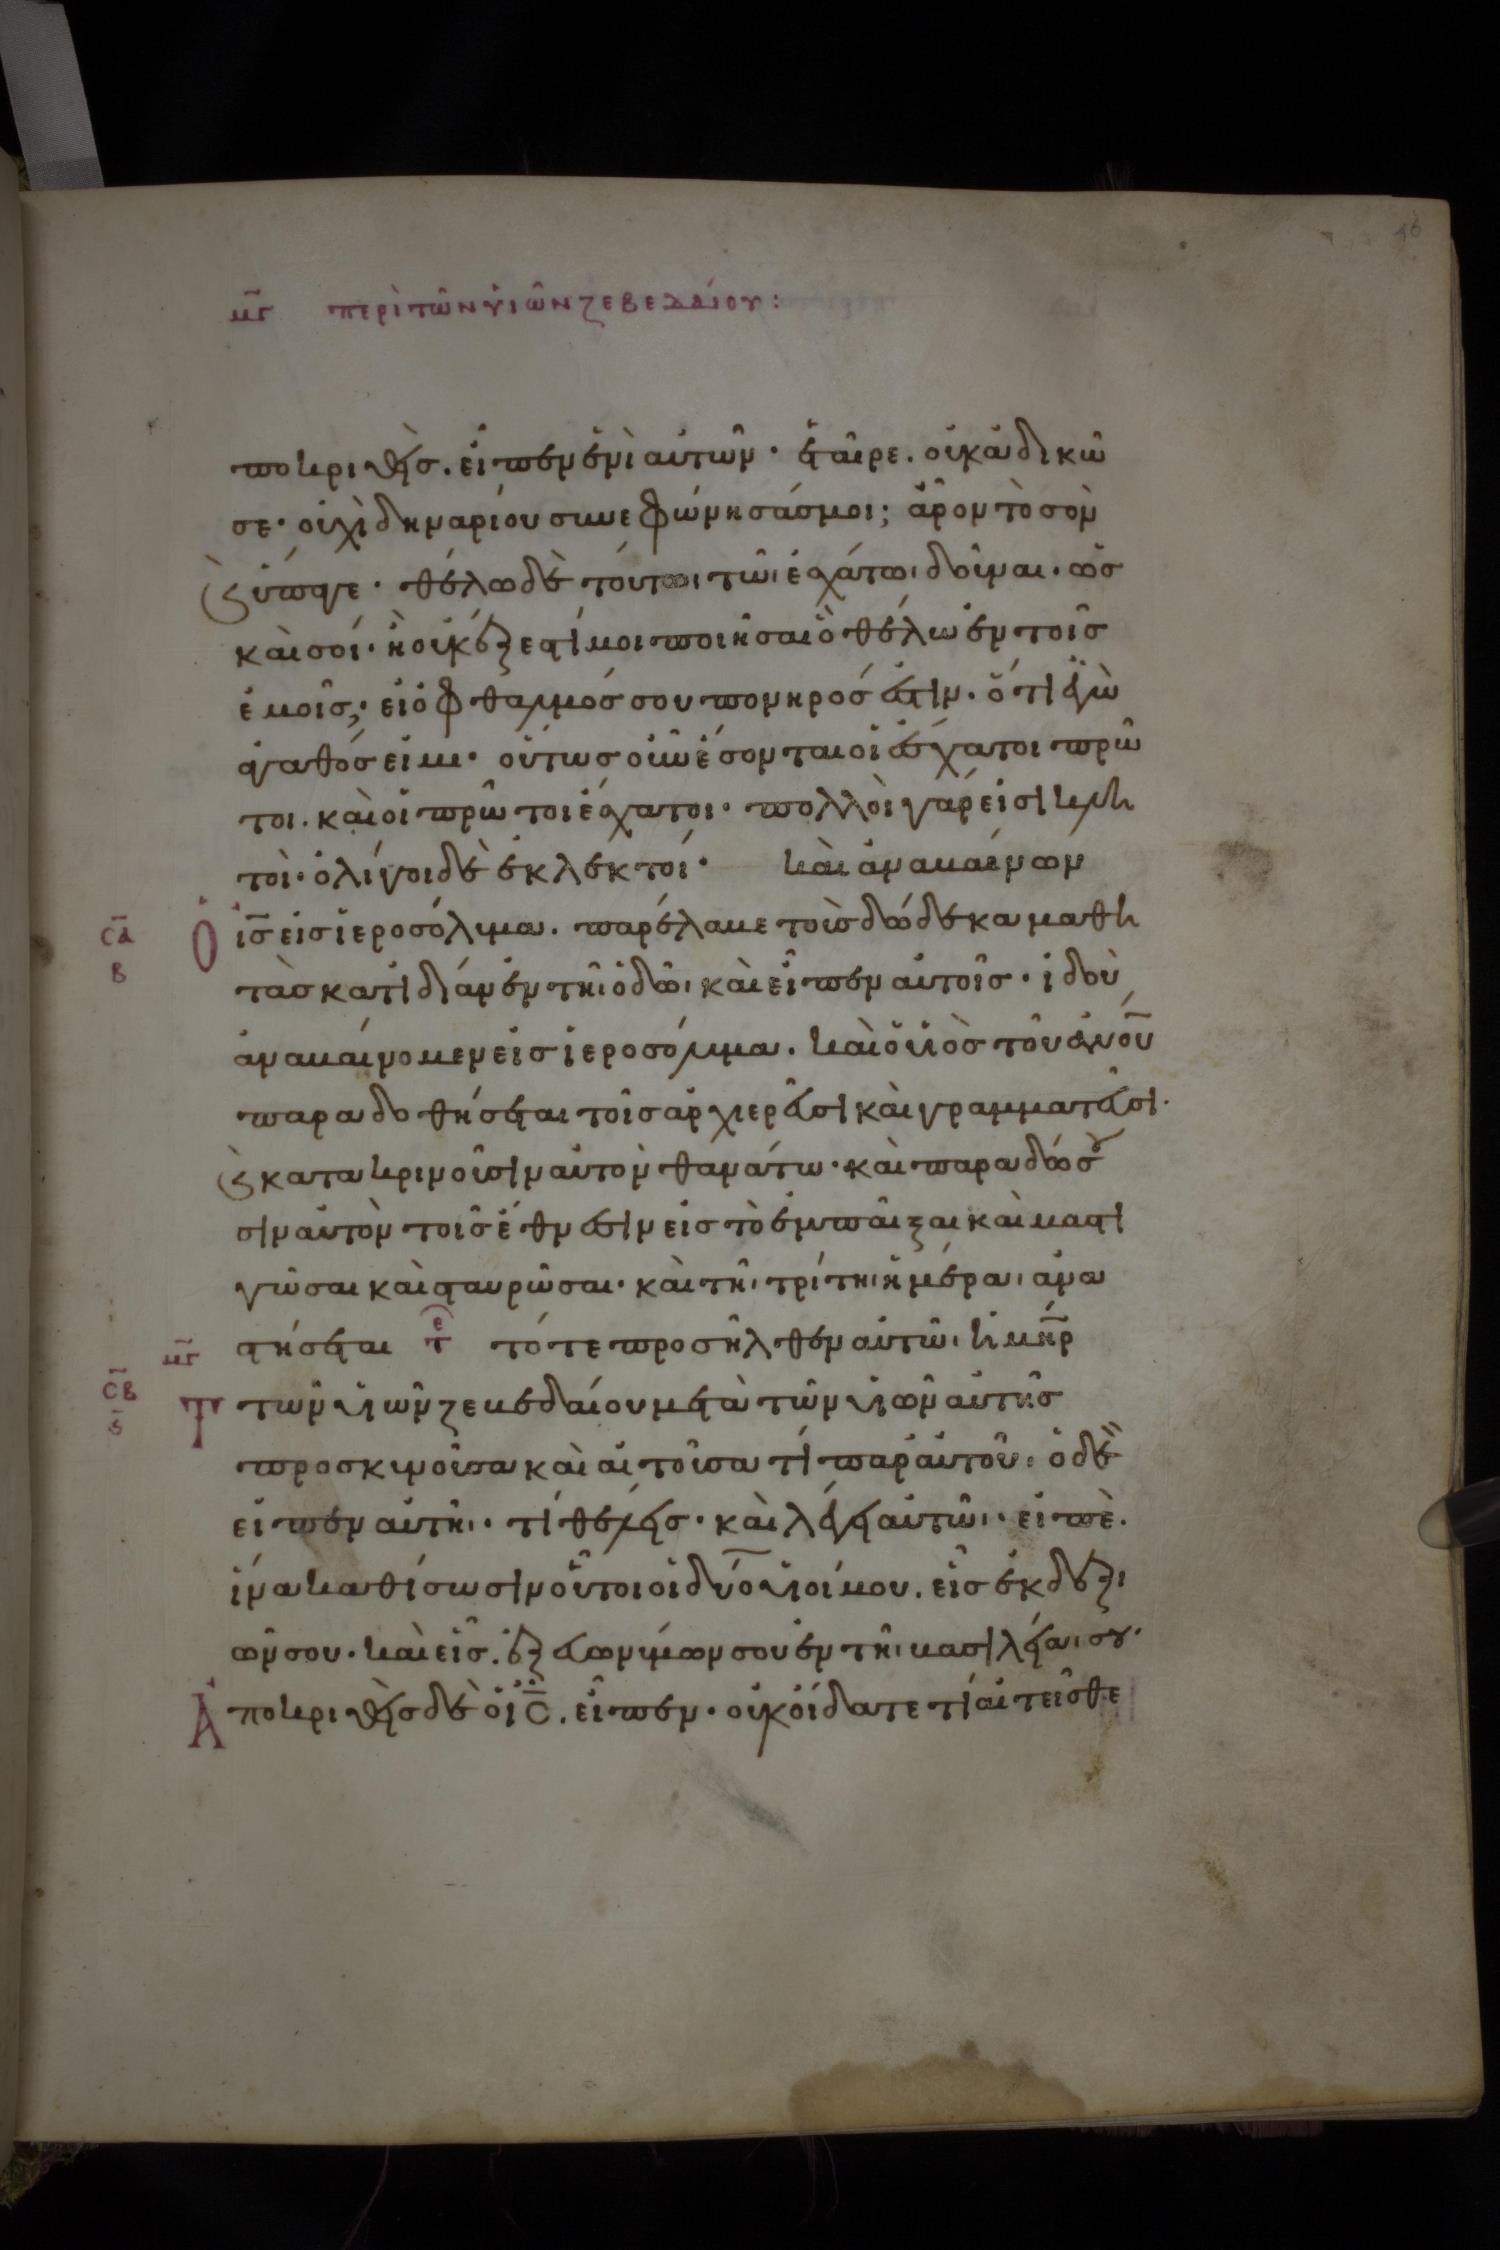 46
μγ περὶ τῶν υἱῶν ζεβεδαίου:
ποκριθεὶς. εἶπεν ἑνὶ αὐτῶν· ἑταῖρε. οὐκ ἀδικῶ
σε· οὐχὶ δηναρίου συνεφώνησάς μοι; ἆρον τὸ σὸν
ϗ ὕπαγε· θέλω δὲ τούτωι τῶι ἐσχάτωι δοῦναι. ὡς
καὶ σοί· ἢ οὐκ ἔξεστί μοι ποιῆσαι ὃ θέλω ἐν τοῖς
ἐμοῖς; εἰ ὁ ὀφθαλμός σου πονηρός ἐστιν. ὅτι ἐγὼ
ἀγαθός εἰμι· οὕτως οὖν ἔσονται οἱ ἔσχατοι πρῶ
τοι. καὶ οἱ πρῶτοι ἔσχατοι· πολλοὶ γάρ εἰσι κλη
τοὶ· ὀλίγοι δὲ ἐκλεκτοί· καὶ ἀναβαίνων
σα ὁ ις εἰς ἱεροσόλυμα. παρέλαβε τοὺς δώδεκα μαθη
β τὰς κατιδίαν ἐν τῆι ὁδῶι καὶ εἶπεν αὐτοῖς· ἰδοὺ
ἀναβαίνομεν εἰς ἱεροσόλυμα. καὶ ὁ υἱὸς τοῦ ανου
παραδοθήσεται τοῖς ἀρχιερεῦσι καὶ γραμματεῦσι·
ϗ κατακρινοῦσιν αὐτὸν θανάτω· καὶ παραδώσου
σιν αὐτὸν τοῖς ἔθνεσιν εἰς τὸ ἐμπαῖξαι καὶ μαστι
γῶσαι καὶ σταυρῶσαι· καὶ τῆι τρίτηι ἡμέραι ἀνα
μγ στήσεται τε τότε προσῆλθεν αὐτῶι ἡ μηρ
σβ ς Τ τῶν υἱῶν ζεβεδαίου μετὰ τῶν υἱῶν αὐτῆς
προσκυνοῦσα καὶ αἰτοῦσα τί παρ αὐτοῦ· ὁ δὲ
εἶπεν αὐτῆι· τί θέλεις· καὶ λέγει αὐτῶι· εἰπὲ.
ἵνα καθίσωσιν οὗτοι οἱ δύο υἱοί μου. εἷς ἐκ δεξι
ῶν σου· καὶ εἷς. ἐξ εὐωνύμων σου ἐν τῆι βασιλείαι σου·
Ἀποκριθεὶς δὲ ὁ ις. εἶπεν· οὐκ οἴδατε τί αἰτεῖσθε